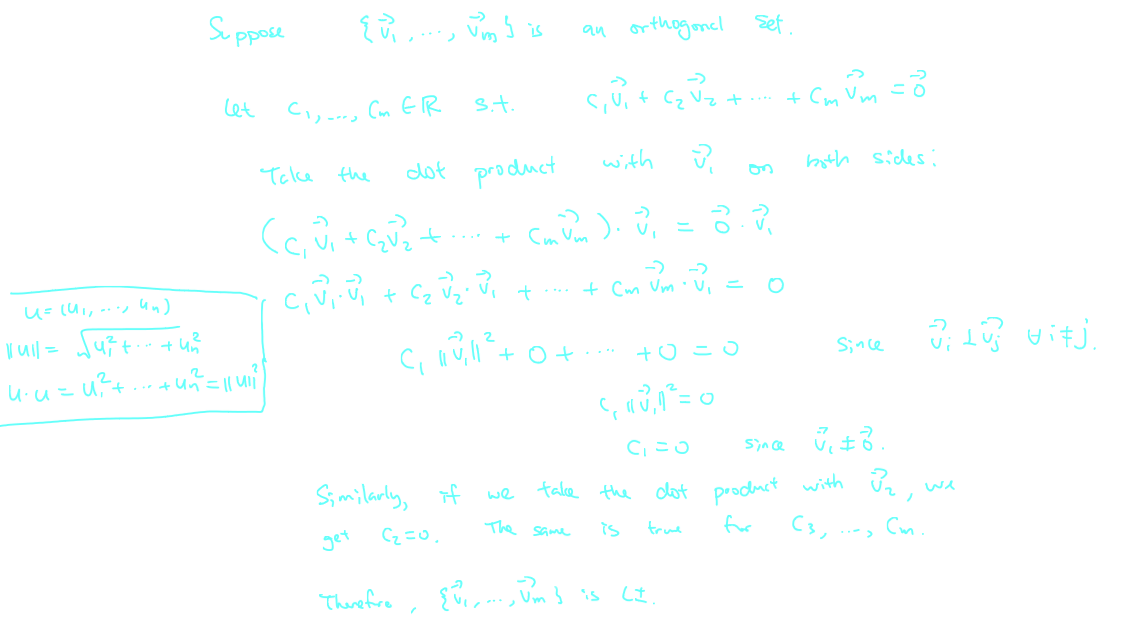 Suppose {v⃗₁, ..., v⃗ₘ} is an orthogonal set.
Let c₁, ..., cₘ ∈ ℝ s.t. c₁v⃗₁ + c₂v⃗₂ + ... + cₘv⃗ₘ = 0⃗
Take the dot product with v⃗₁ on both sides:
(c₁v⃗₁ + c₂v⃗₂ + ... + cₘv⃗ₘ) · v⃗₁ = 0⃗ · v⃗₁
c₁v⃗₁·v⃗₁ + c₂v⃗₂·v⃗₁ + ... + cₘv⃗ₘ·v⃗₁ = 0
c₁‖v⃗₁‖² + 0 + ... + 0 = 0 since v⃗ᵢ ⊥ v⃗ⱼ ∀ i ≠ j.
c₁‖v⃗₁‖² = 0
c₁ = 0 since v⃗₁ ≠ 0⃗.
Similarly, if we take the dot product with v⃗₂, we
get c₂=0. The same is true for c₃, ..., cₘ.
Therefore, {v⃗₁, ..., v⃗ₘ} is LI.
u = (u₁, ..., uₙ)
‖u‖ = √(u₁² + ... + uₙ²)
u·u = u₁² + ... + uₙ² = ‖u‖²